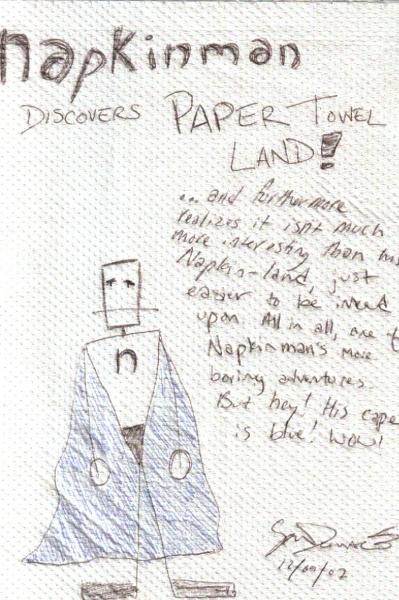 Napkinman
DISCOVERS PAPER TOWEL
LAND!
...and furthermore
realizes it isn't much
more interesting than his
Napkin-land, just
easier to be inked
upon. All in all, one of
Napkinman's more
boring adventures.
But hey! His cape
is blue! Wow!
n
12/09/02